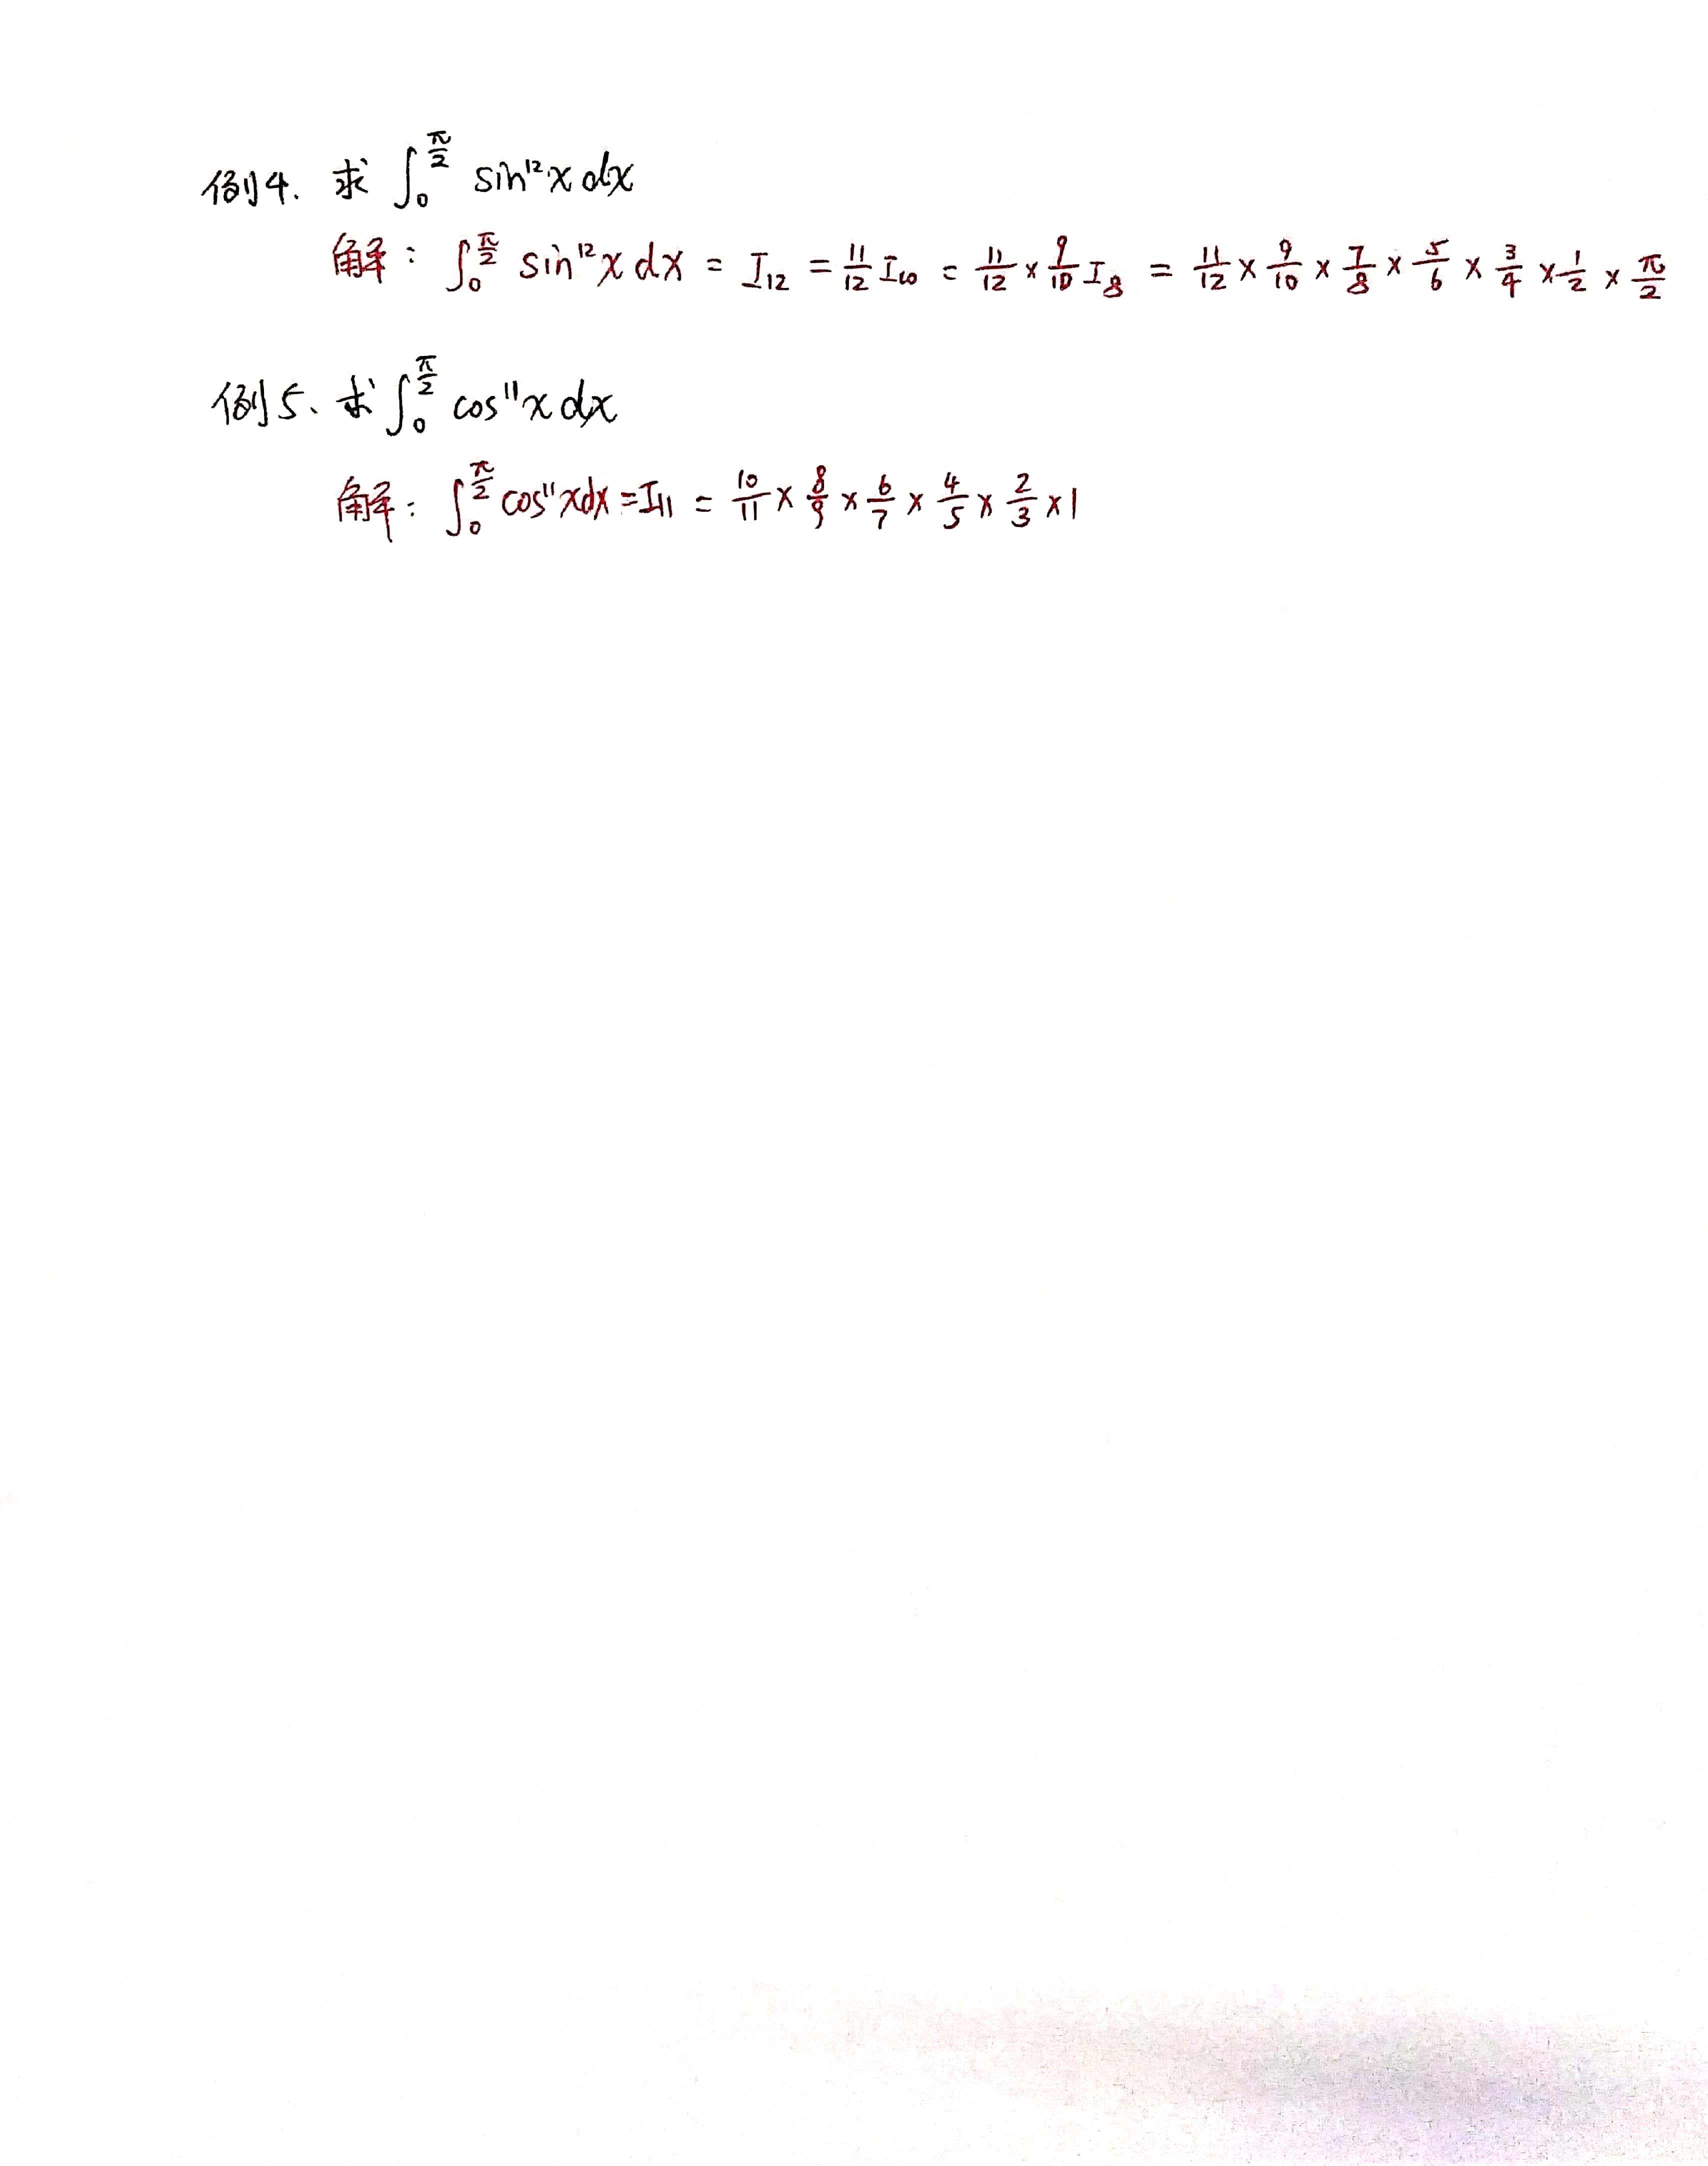 例4. 求 ∫₀^{π/2} sin¹²x dx
解：∫₀^{π/2} sin¹²x dx = I₁₂ = 11/12 I₁₀ = 11/12 × 9/10 I₈ = 11/12 × 9/10 × 7/8 × 5/6 × 3/4 × 1/2 × π/2
例5、求 ∫₀^{π/2} cos¹¹x dx
解：∫₀^{π/2} cos¹¹x dx = I₁₁ = 10/11 × 8/9 × 6/7 × 4/5 × 2/3 × 1